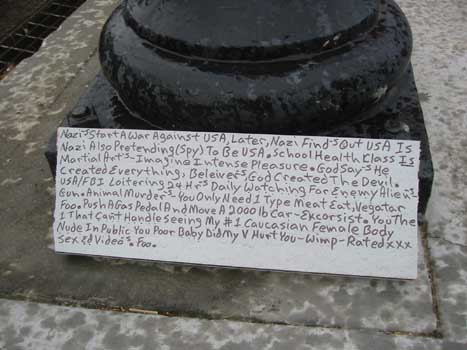 Nazi's Start A War Against USA, Later, Nazi Find's Out USA Is
Nazi Also Pretending (Spy) To Be USA. School Health Class Is
Martial Art's - Imagine Intense Pleasure. God Say's He
Created Everything, Beleiver's God Created The Devil.
USA/FBI Loitering 24 Hr's Daily Watching For Enemy Alien's -
Gun. Animal Murder - You Only Need 1 Type Meat Eat, Vegatar
Foo. Push A Gas Pedal And Move A 2000 lb Car - Excorsist. You The
1 That Can't Handle Seeing My #1 Caucasian Female Body
Nude In Public You Poor Baby Did My V Hurt You - Wimp - Rated xxx
Sex Ed Video's. Foo.